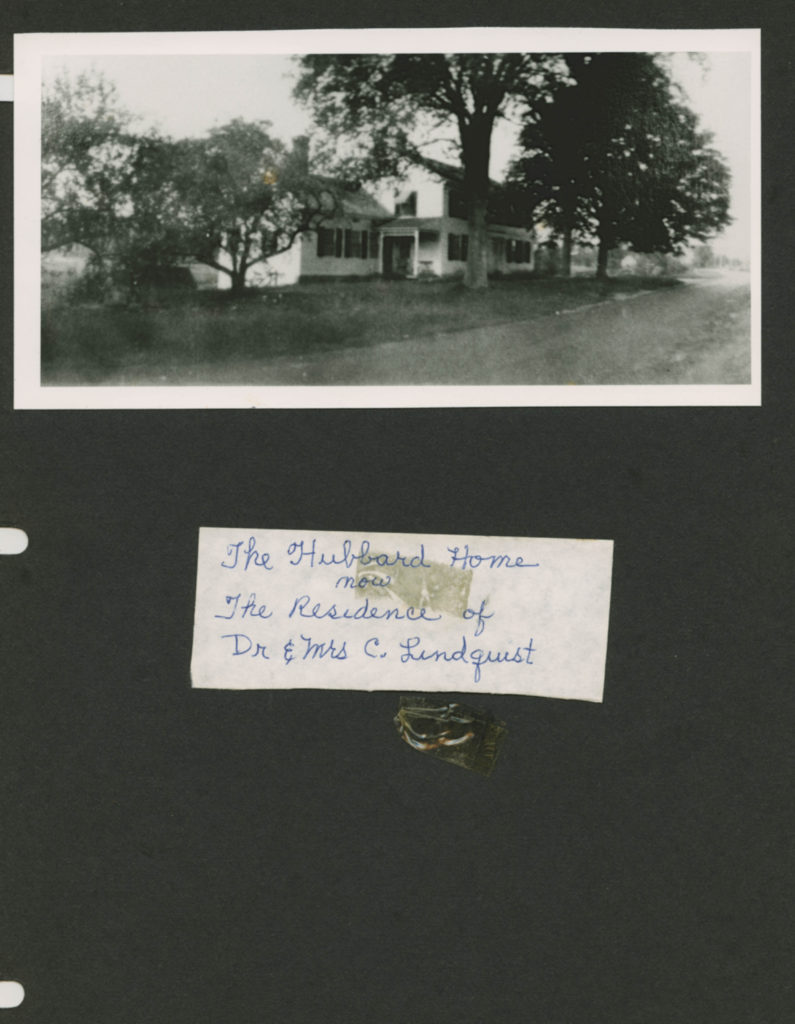 The Hubbard Home
now
The Residence of
Dr & Mrs C. Lindquist